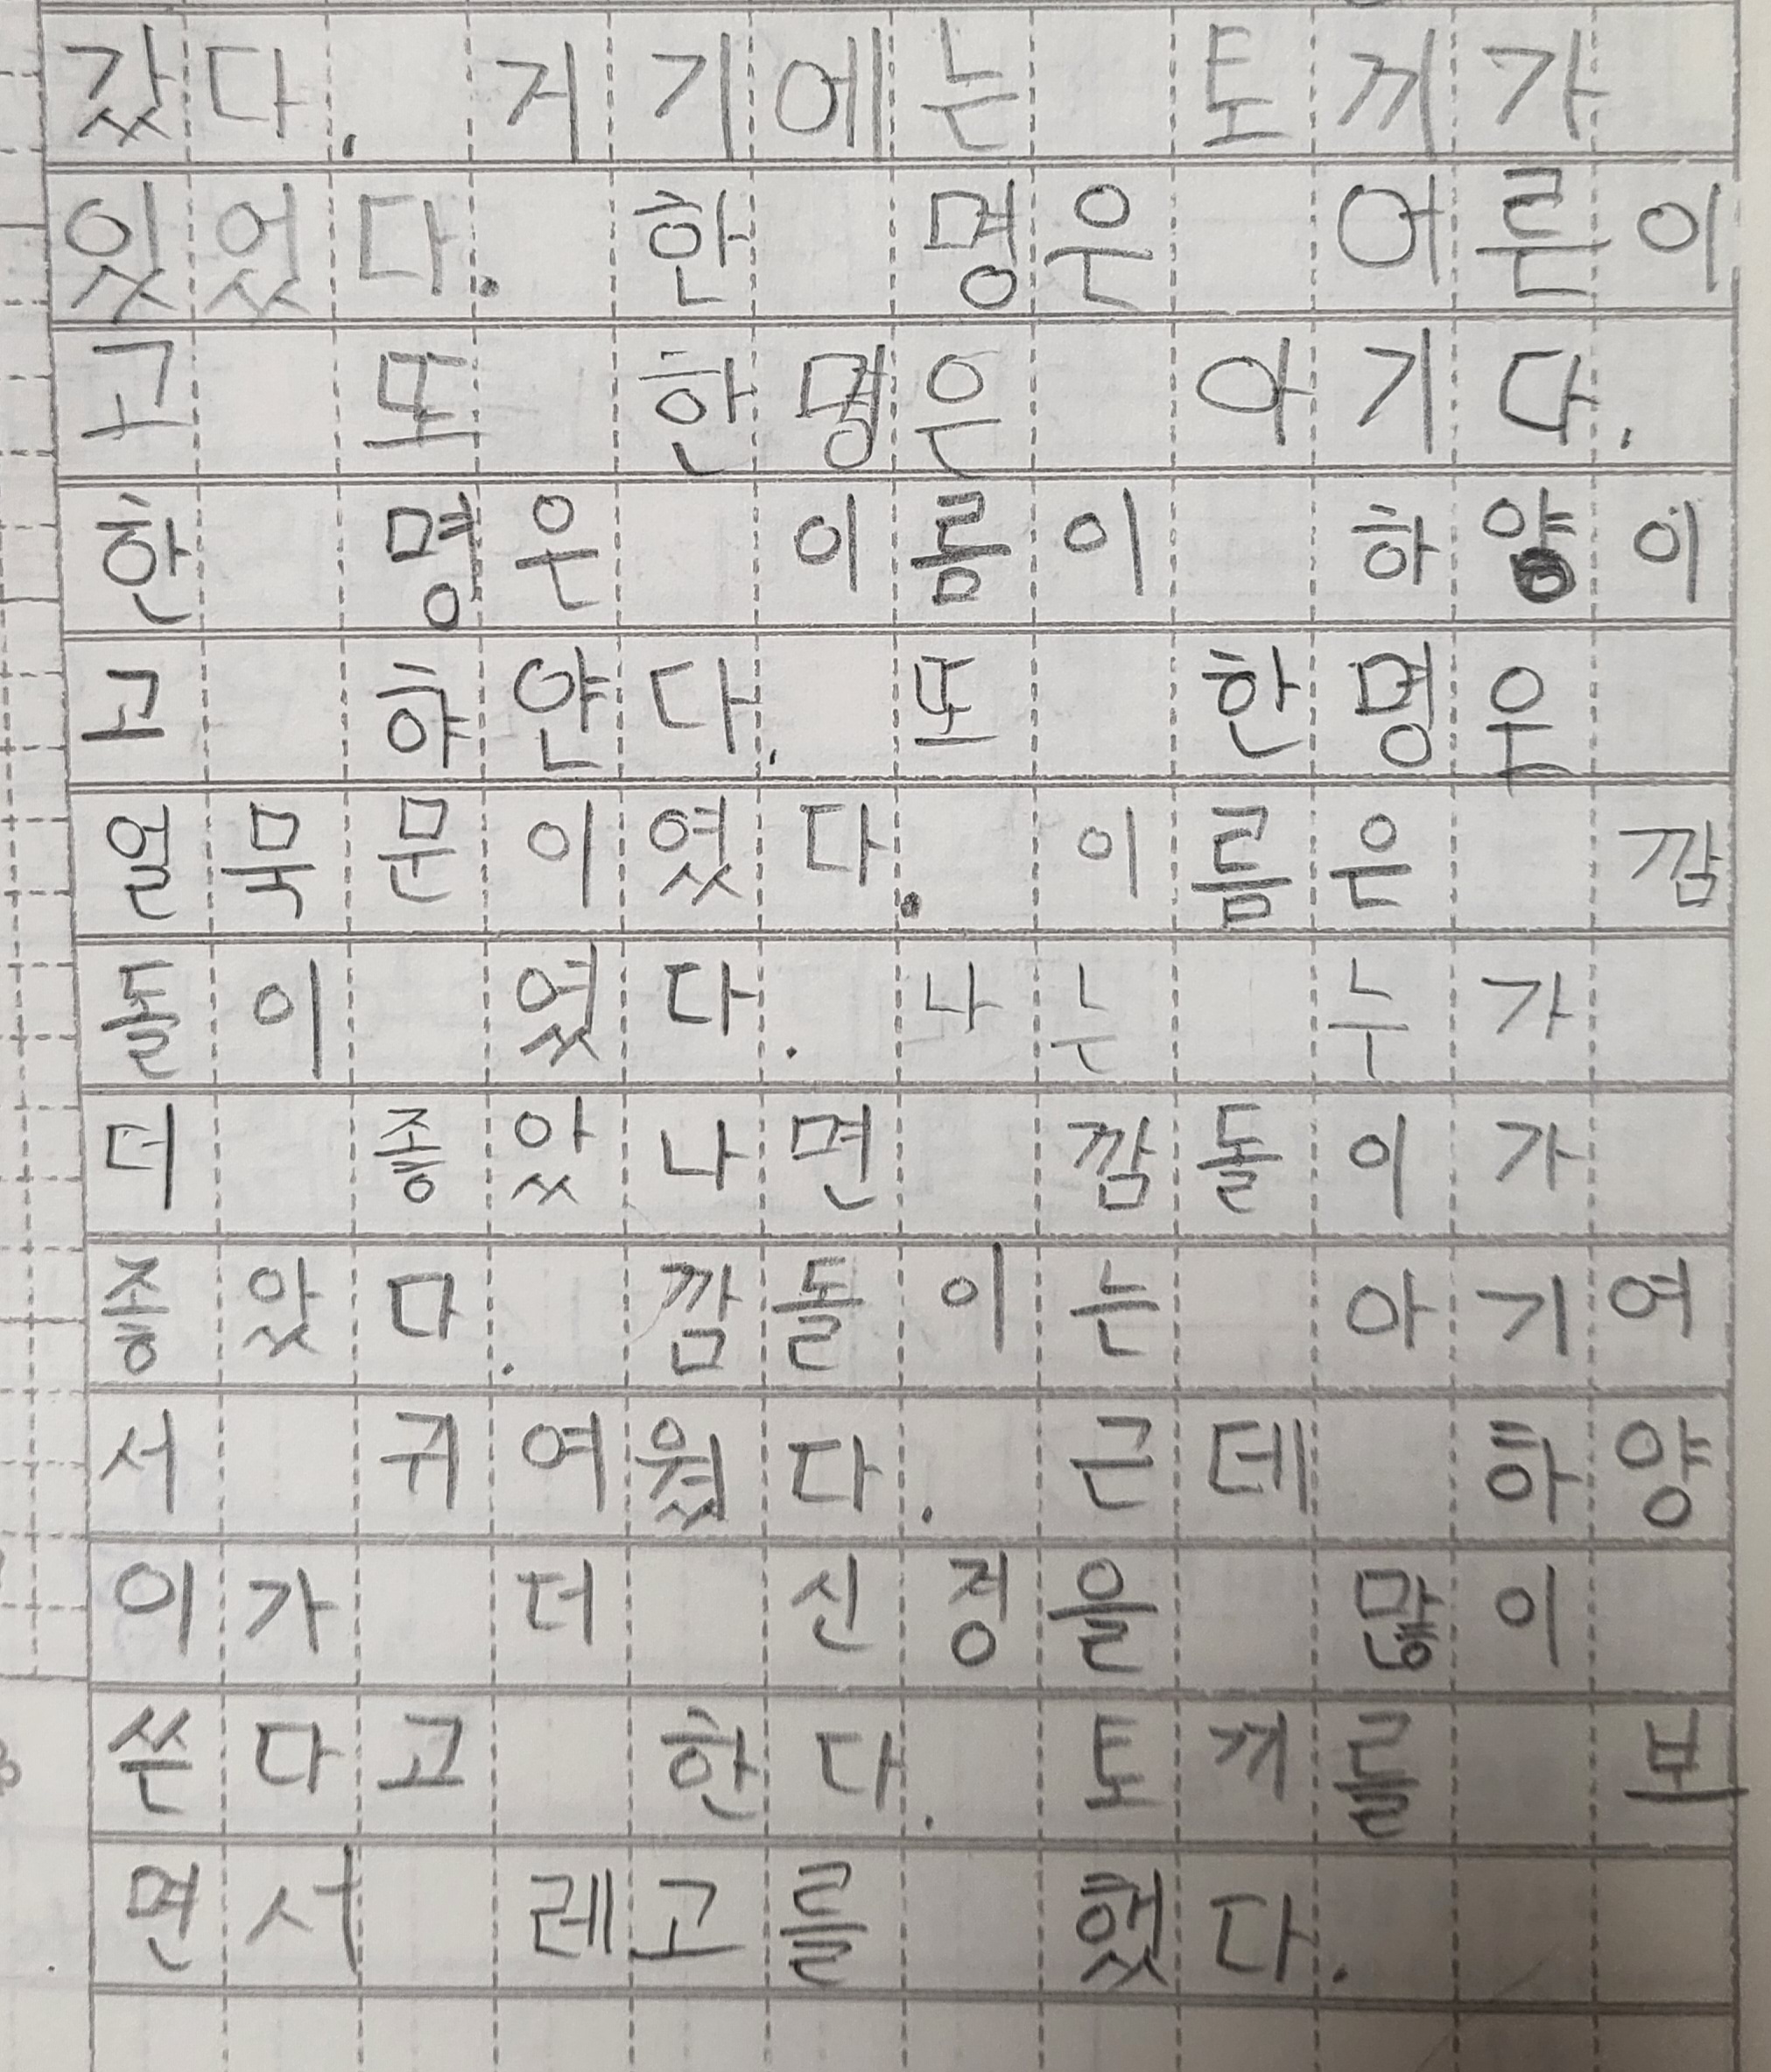 갔다. 거기에는 토끼가
있었다. 한 명은 어른이
고 또 한명은 아기다.
한 명은 이름이 하양이
고 햐얀다. 또 한명은
얼묵문이였다. 이름은 깜
돌이 였다. 나는 누가
더 좋았나면 깜돌이가
좋았다. 깜돌이는 아기여
서 귀여웠다. 근데 하양
이가 더 신경을 많이
쓴다고 한다. 토끼를 보
면서 레고를 했다.